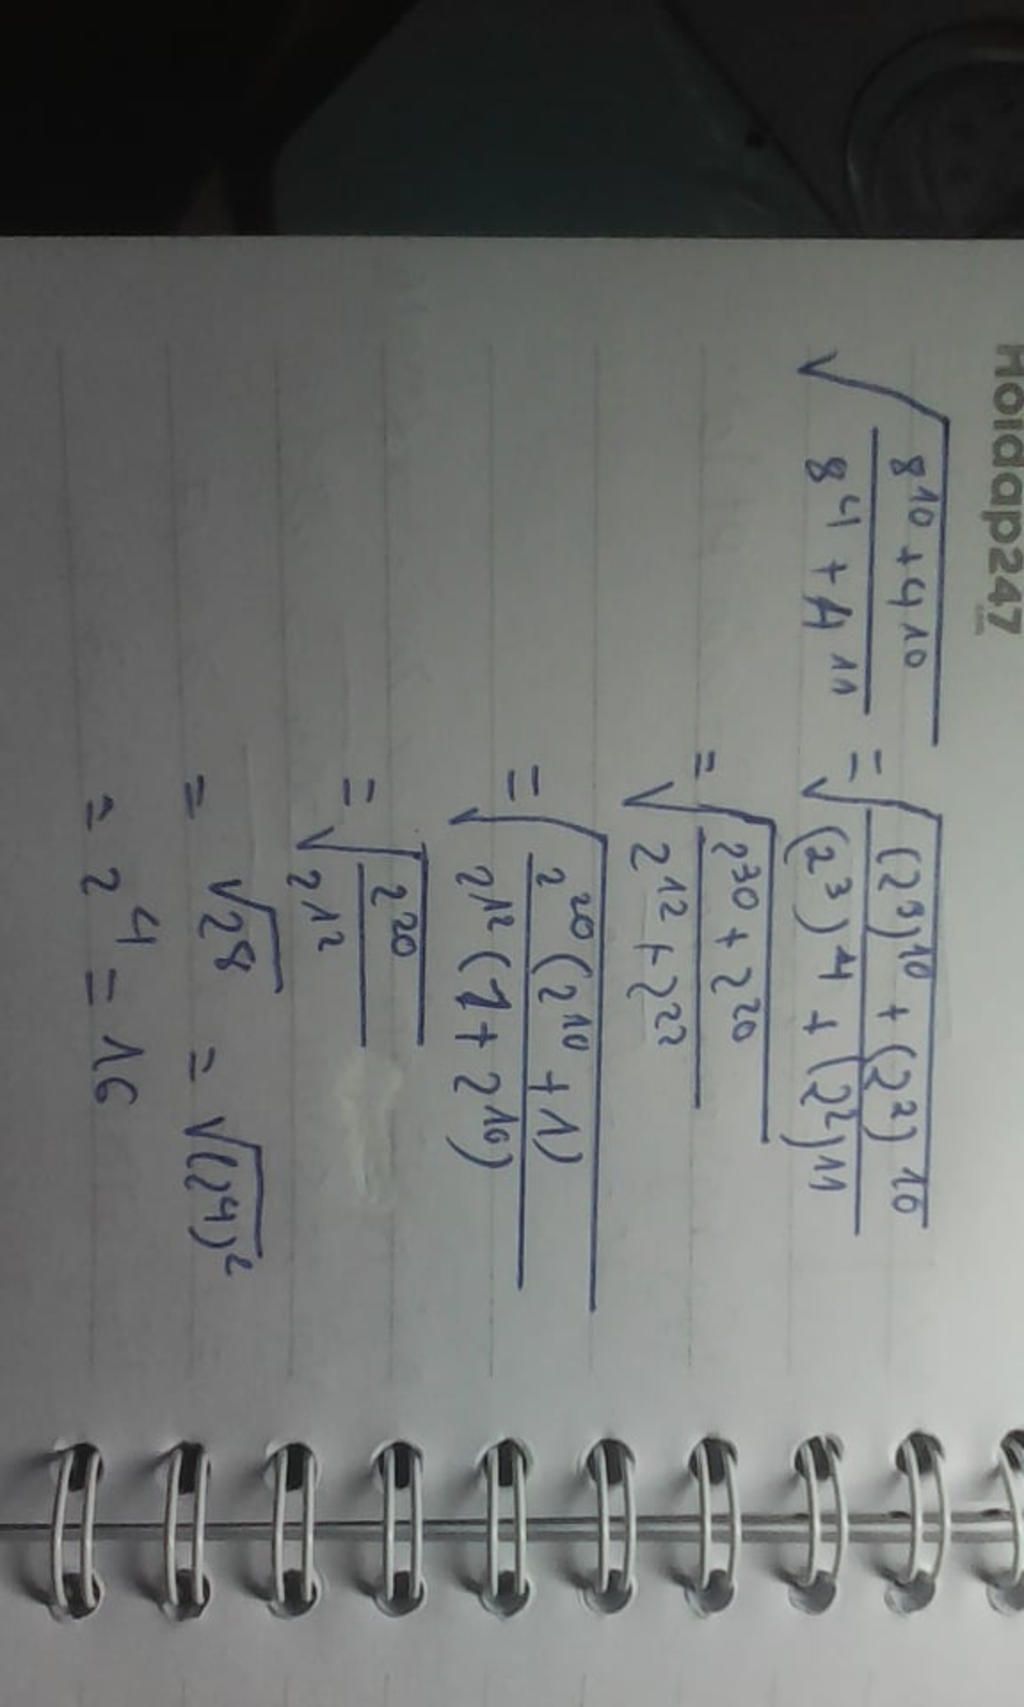 Hoidap247
√((8¹⁰ + 4¹⁰)/(8⁴ + 4¹¹)) = √(((2³)¹⁰ + (2²)¹⁰)/((2³)⁴ + (2²)¹¹))
= √((2³⁰ + 2²⁰)/(2¹² + 2²²))
= √((2²⁰(2¹⁰ + 1))/(2¹²(1 + 2¹⁰)))
= √(2²⁰/2¹²)
= √2⁸ = √(2⁴)²
= 2⁴ = 16